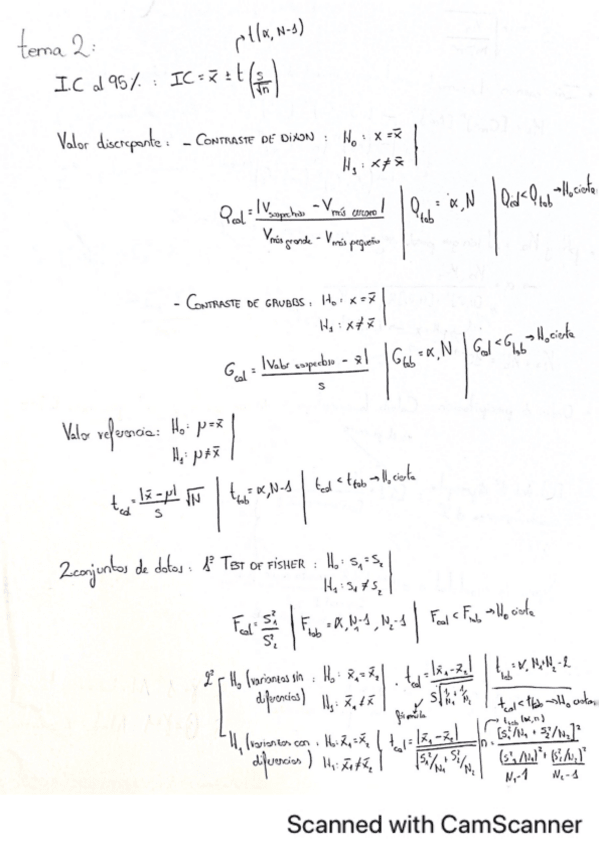 tema 2:
t(α, N-1)
I.C al 95% : IC = x̄ ± t (s/√n)
Valor discrepante: - CONTRASTE DE DIXON : H₀ : x = x̄
H₁ : x ≠ x̄
Qcal = |Vsospechoso - Vmás cercano| / Vmás grande - Vmás pequeño | Qtab = α, N | Qcal < Qtab → H₀ cierta
- CONTRASTE DE GRUBBS : H₀ : x = x̄
H₁ : x ≠ x̄
Gcal = |Valor sospechoso - x̄| / s | Gtab = α, N | Gcal < Gtab → H₀ cierta
Valor referencia: H₀ : μ = x̄
H₁ : μ ≠ x̄
tcal = |x̄ - μ| / s √N | ttab = α, N-1 | tcal < ttab → H₀ cierta
2 conjuntos de datos : 1º TEST OF FISHER : H₀ : s₁ = s₂
H₁ : s₁ ≠ s₂
Fcal = s₁² / s₂² | Ftab = α, N₁-1, N₂-1 | Fcal < Ftab → H₀ cierta
2º H₀ (varianzas sin diferencias) : H₀ : x̄₁ = x̄₂
H₁ : x̄₁ ≠ x̄₂
tcal = |x̄₁ - x̄₂| / s √(1/N₁ + 1/N₂) | ttab = α, N₁+N₂-2
fórmula
tcal < ttab → H₀ cierta
H₁ (varianzas con diferencias) : H₀ : x̄₁ = x̄₂
H₁ : x̄₁ ≠ x̄₂
tcal = |x̄₁ - x̄₂| / √(s₁²/N₁ + s₂²/N₂)
ttab (α, n)
n = [s₁²/N₁ + s₂²/N₂]² / (s₁²/N₁)² / N₁-1 + (s₂²/N₂)² / N₂-1
Scanned with CamScanner